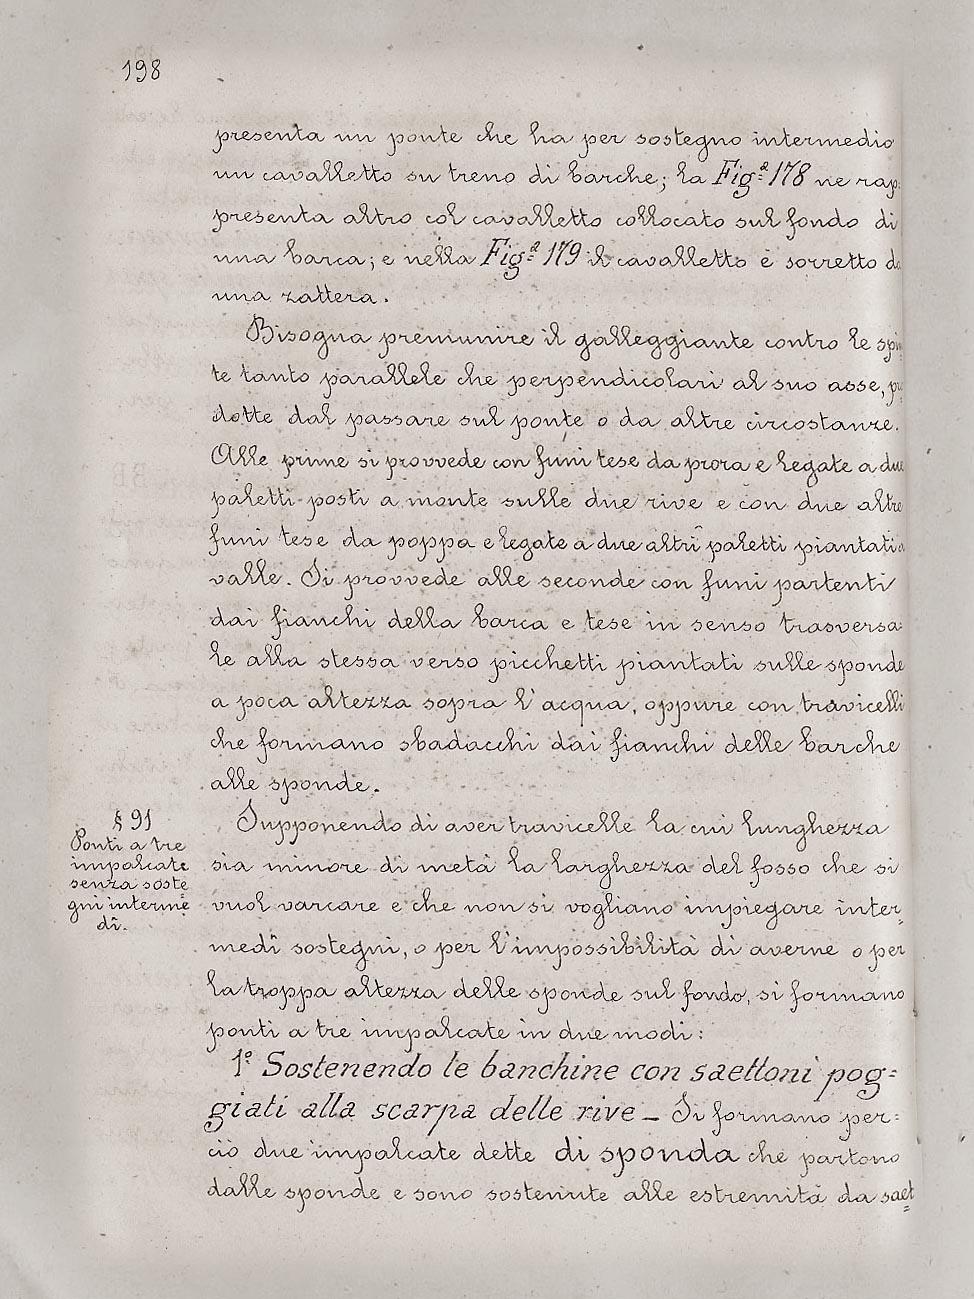 198
presenta un ponte che ha per sostegno intermedio
un cavalletto su treno di barche; la Fig.ª 178 ne rap=
presenta altro col cavalletto collocato sul fondo di
una barca; e nella Fig.ª 179 il cavalletto è sorretto da
una zattera.
Bisogna premunire il galleggiante contro le spin=
te tanto parallele che perpendicolari al suo asse, pro=
dotte dal passare sul ponte o da altre circostanze.
Alle prime si provvede con funi tese da prora e legate a due
paletti posti a monte sulle due rive e con due altre
funi tese da poppa e legate a due altri paletti piantati a
valle. Si provvede alle seconde con funi partenti
dai fianchi della barca e tese in senso trasversa=
le alla stessa verso picchetti piantati sulle sponde
a poca altezza sopra l'acqua, oppure con travicelli
che formano sbadacchi dai fianchi delle barche
alle sponde.
§ 91
Ponti a tre
impalcate
senza soste
gni interme
dî.
Supponendo di aver travicelle la cui lunghezza
sia minore di metà la larghezza del fosso che si
vuol varcare e che non si vogliano impiegare inter=
medî sostegni, o per l'impossibilità di averne o per
la troppa altezza delle sponde sul fondo, si formano
ponti a tre impalcate in due modi:
1º Sostenendo le banchine con saettoni pog=
giati alla scarpa delle rive _ Si formano per=
ciò due impalcate dette di sponda che partono
dalle sponde e sono sostenute alle estremità da saet=